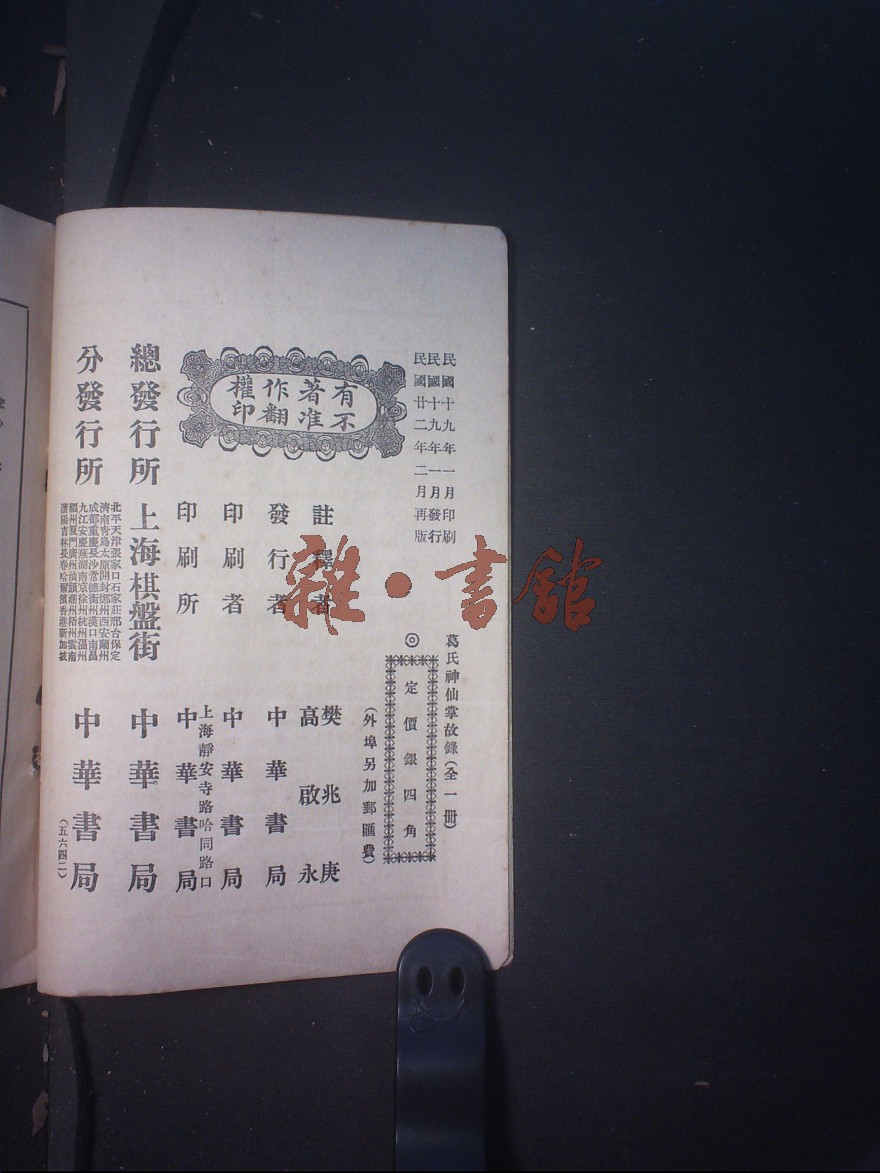 民國十九年一月印刷
民國十九年一月發行
民國廿二年二月再版
有著作權
不准翻印
葛氏神仙掌故錄（全一册）
◎定價銀四角
（外埠另加郵匯費）
註釋者 樊兆庚
高啟永
發行者 中華書局
印刷者 中華書局
印刷所 上海靜安寺路哈同路口
中華書局
總發行所 上海棋盤街 中華書局
分發行所
北平天津張家口石家莊邢台保定
濟南青島太原開封鄭州西安蘭州
成都重慶長沙常德衡州漢口南昌
九江安慶蕪湖南京徐州杭州溫州
福州厦門廣州汕頭潮州梧州雲南
瀋陽吉林長春哈爾濱香港新加坡
中華書局
（五六四二）
雜·書館